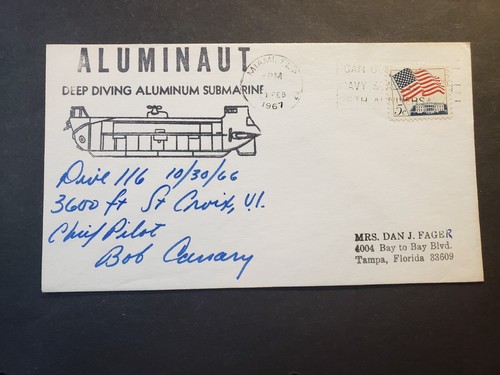 ALUMINAUT
DEEP DIVING ALUMINUM SUBMARINE
MIAMI, FLA.
PM
FEB
1967
NAVY
5c
Dive 116 10/30/66
3600 ft St Croix, V.I.
Chief Pilot
Bob Canary
MRS. DAN J. FAGER
4004 Bay to Bay Blvd.
Tampa, Florida 33609